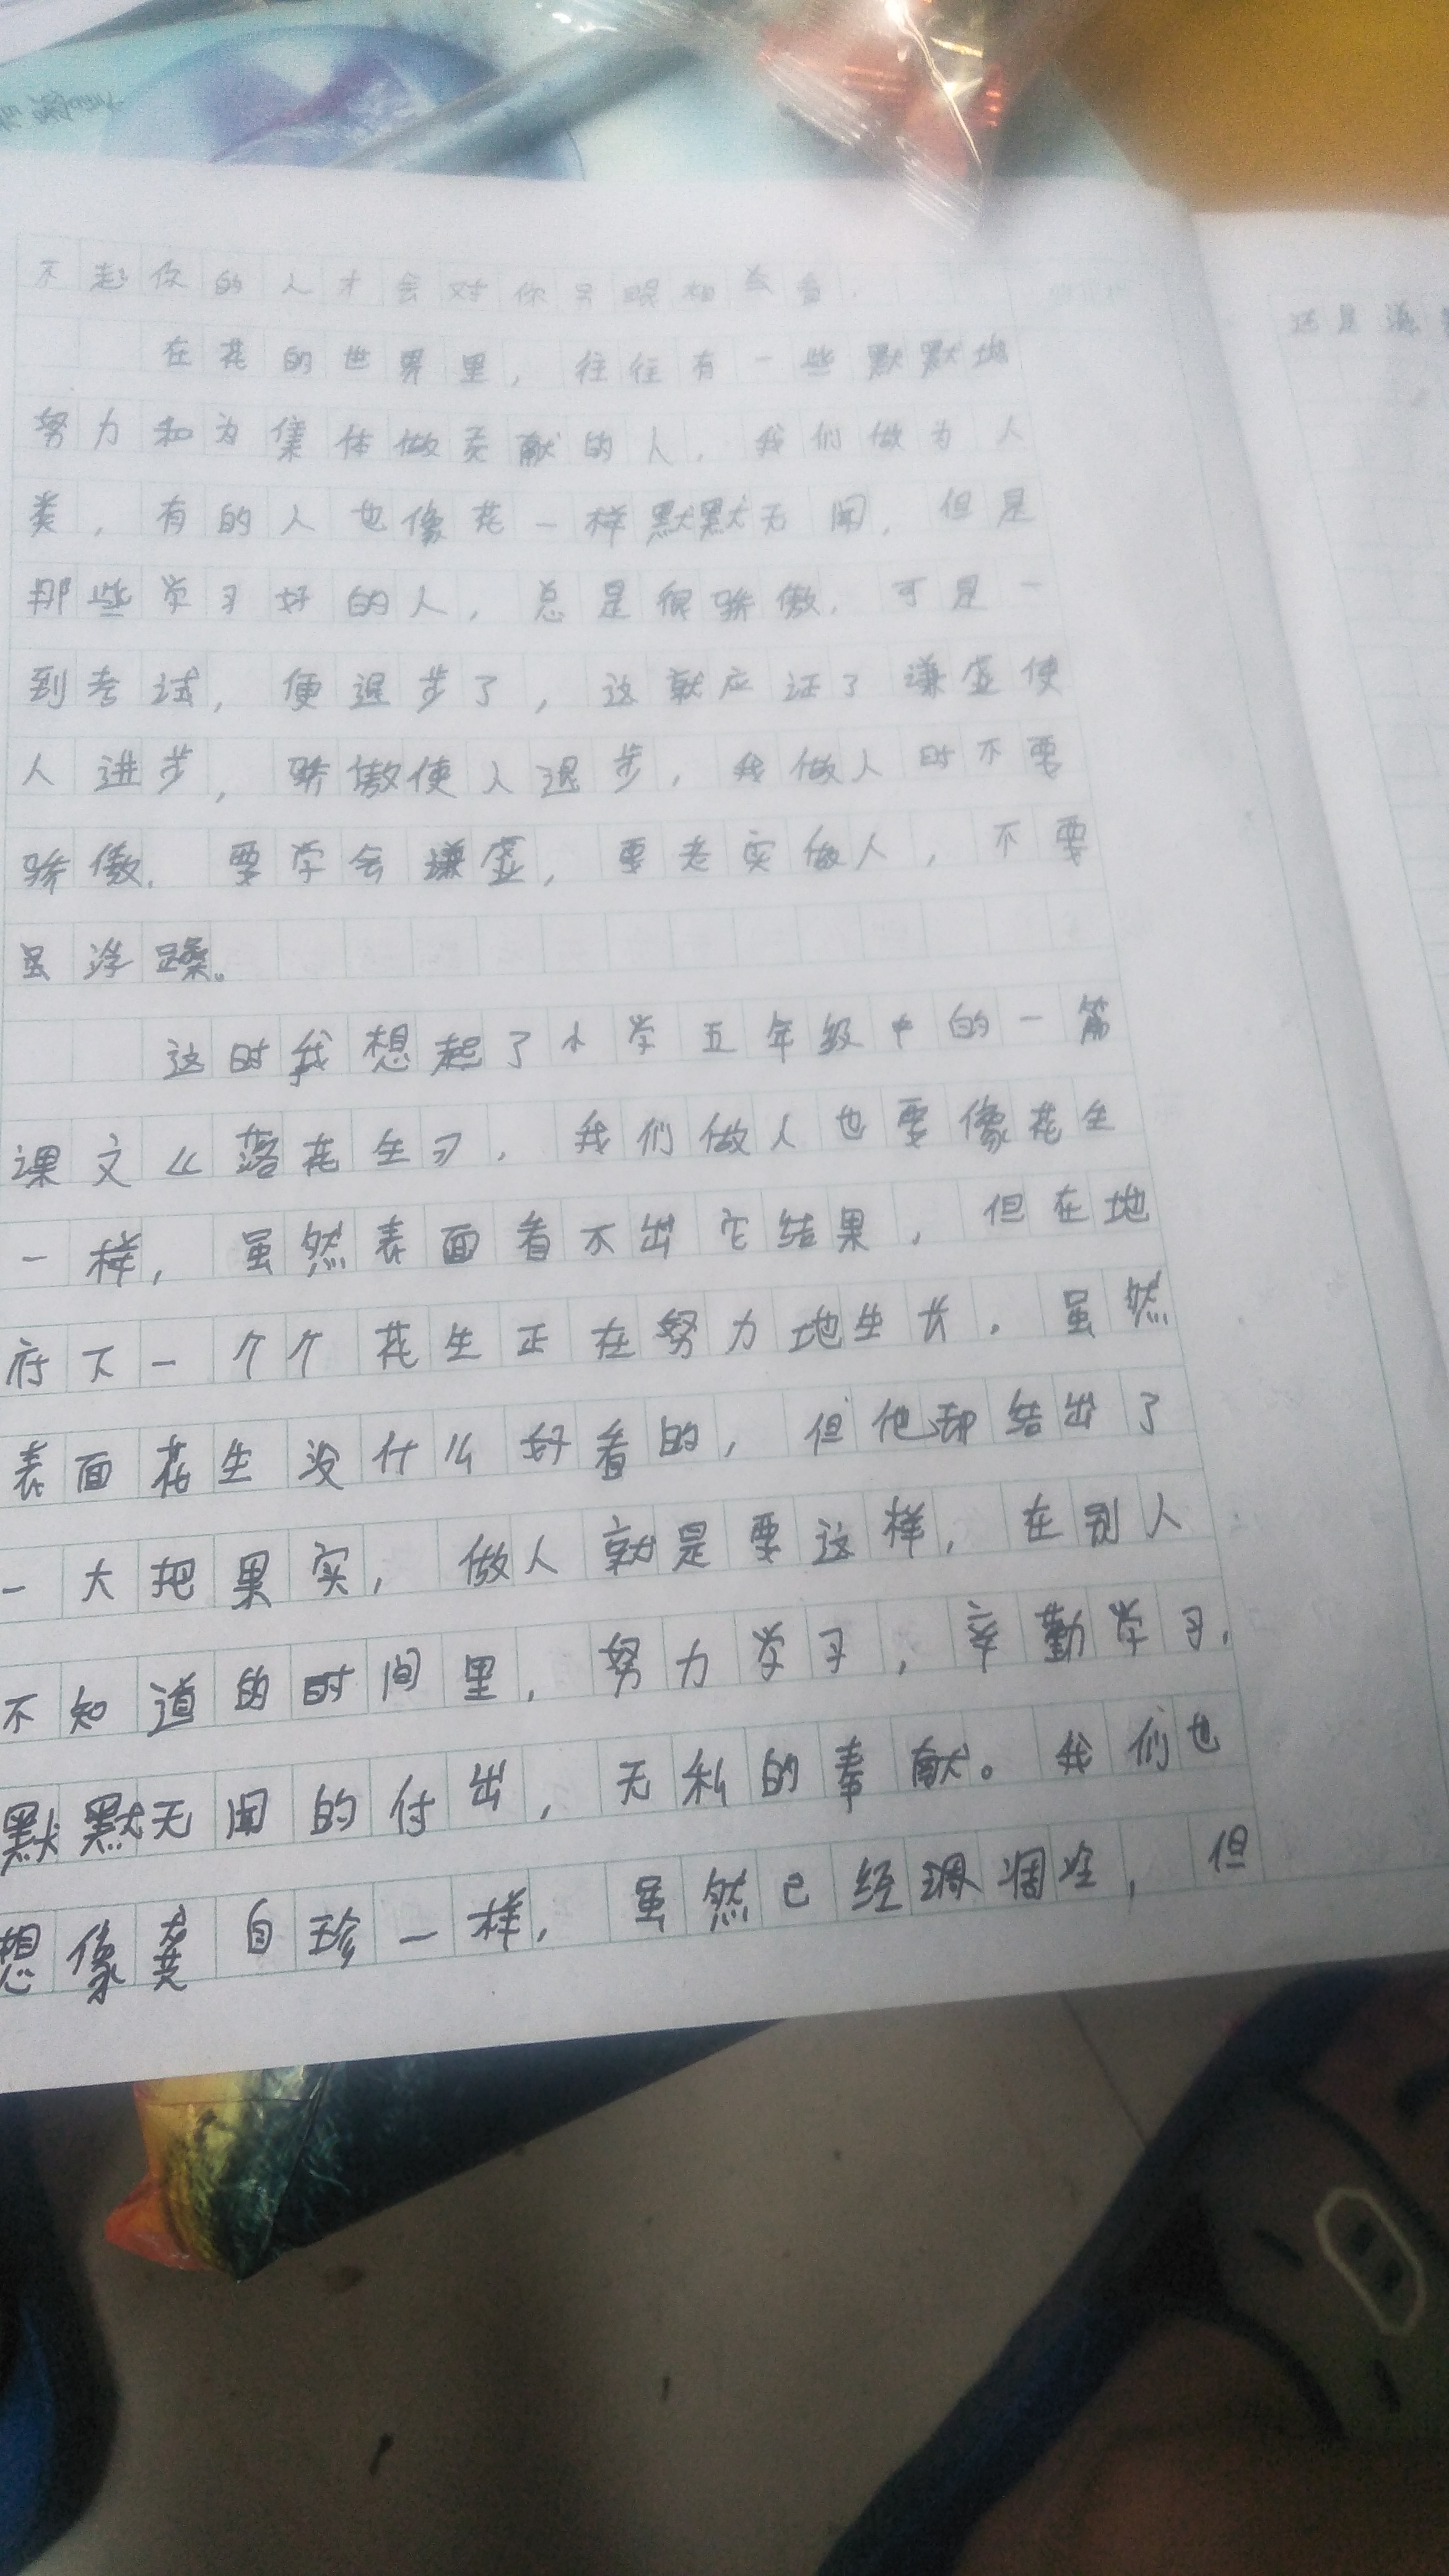 不起你的人才会对你另眼相看.
在花的世界里，往往有一些默默地
努力和为集体做贡献的人，我们做为人
类，有的人也像花一样默默无闻，但是
那些学习好的人，总是很骄傲，可是一
到考试，便退步了，这就应证了谦虚使
人进步，骄傲使人退步，我做人时不要
骄傲，要学会谦虚，要老实做人，不要
浮躁。
这时我想起了小学五年级中的一篇
课文《落花生》，我们做人也要像花生
一样，虽然表面看不出它结果，但在地
底下一个个花生正在努力地生长。虽然
表面花生没什么好看的，但他却结出了
一大把果实，做人就是要这样，在别人
不知道的时间里，努力学习，辛勤学习，
默默无闻的付出，无私的奉献。我们也
想像龚自珍一样，虽然已经凋，但
还是